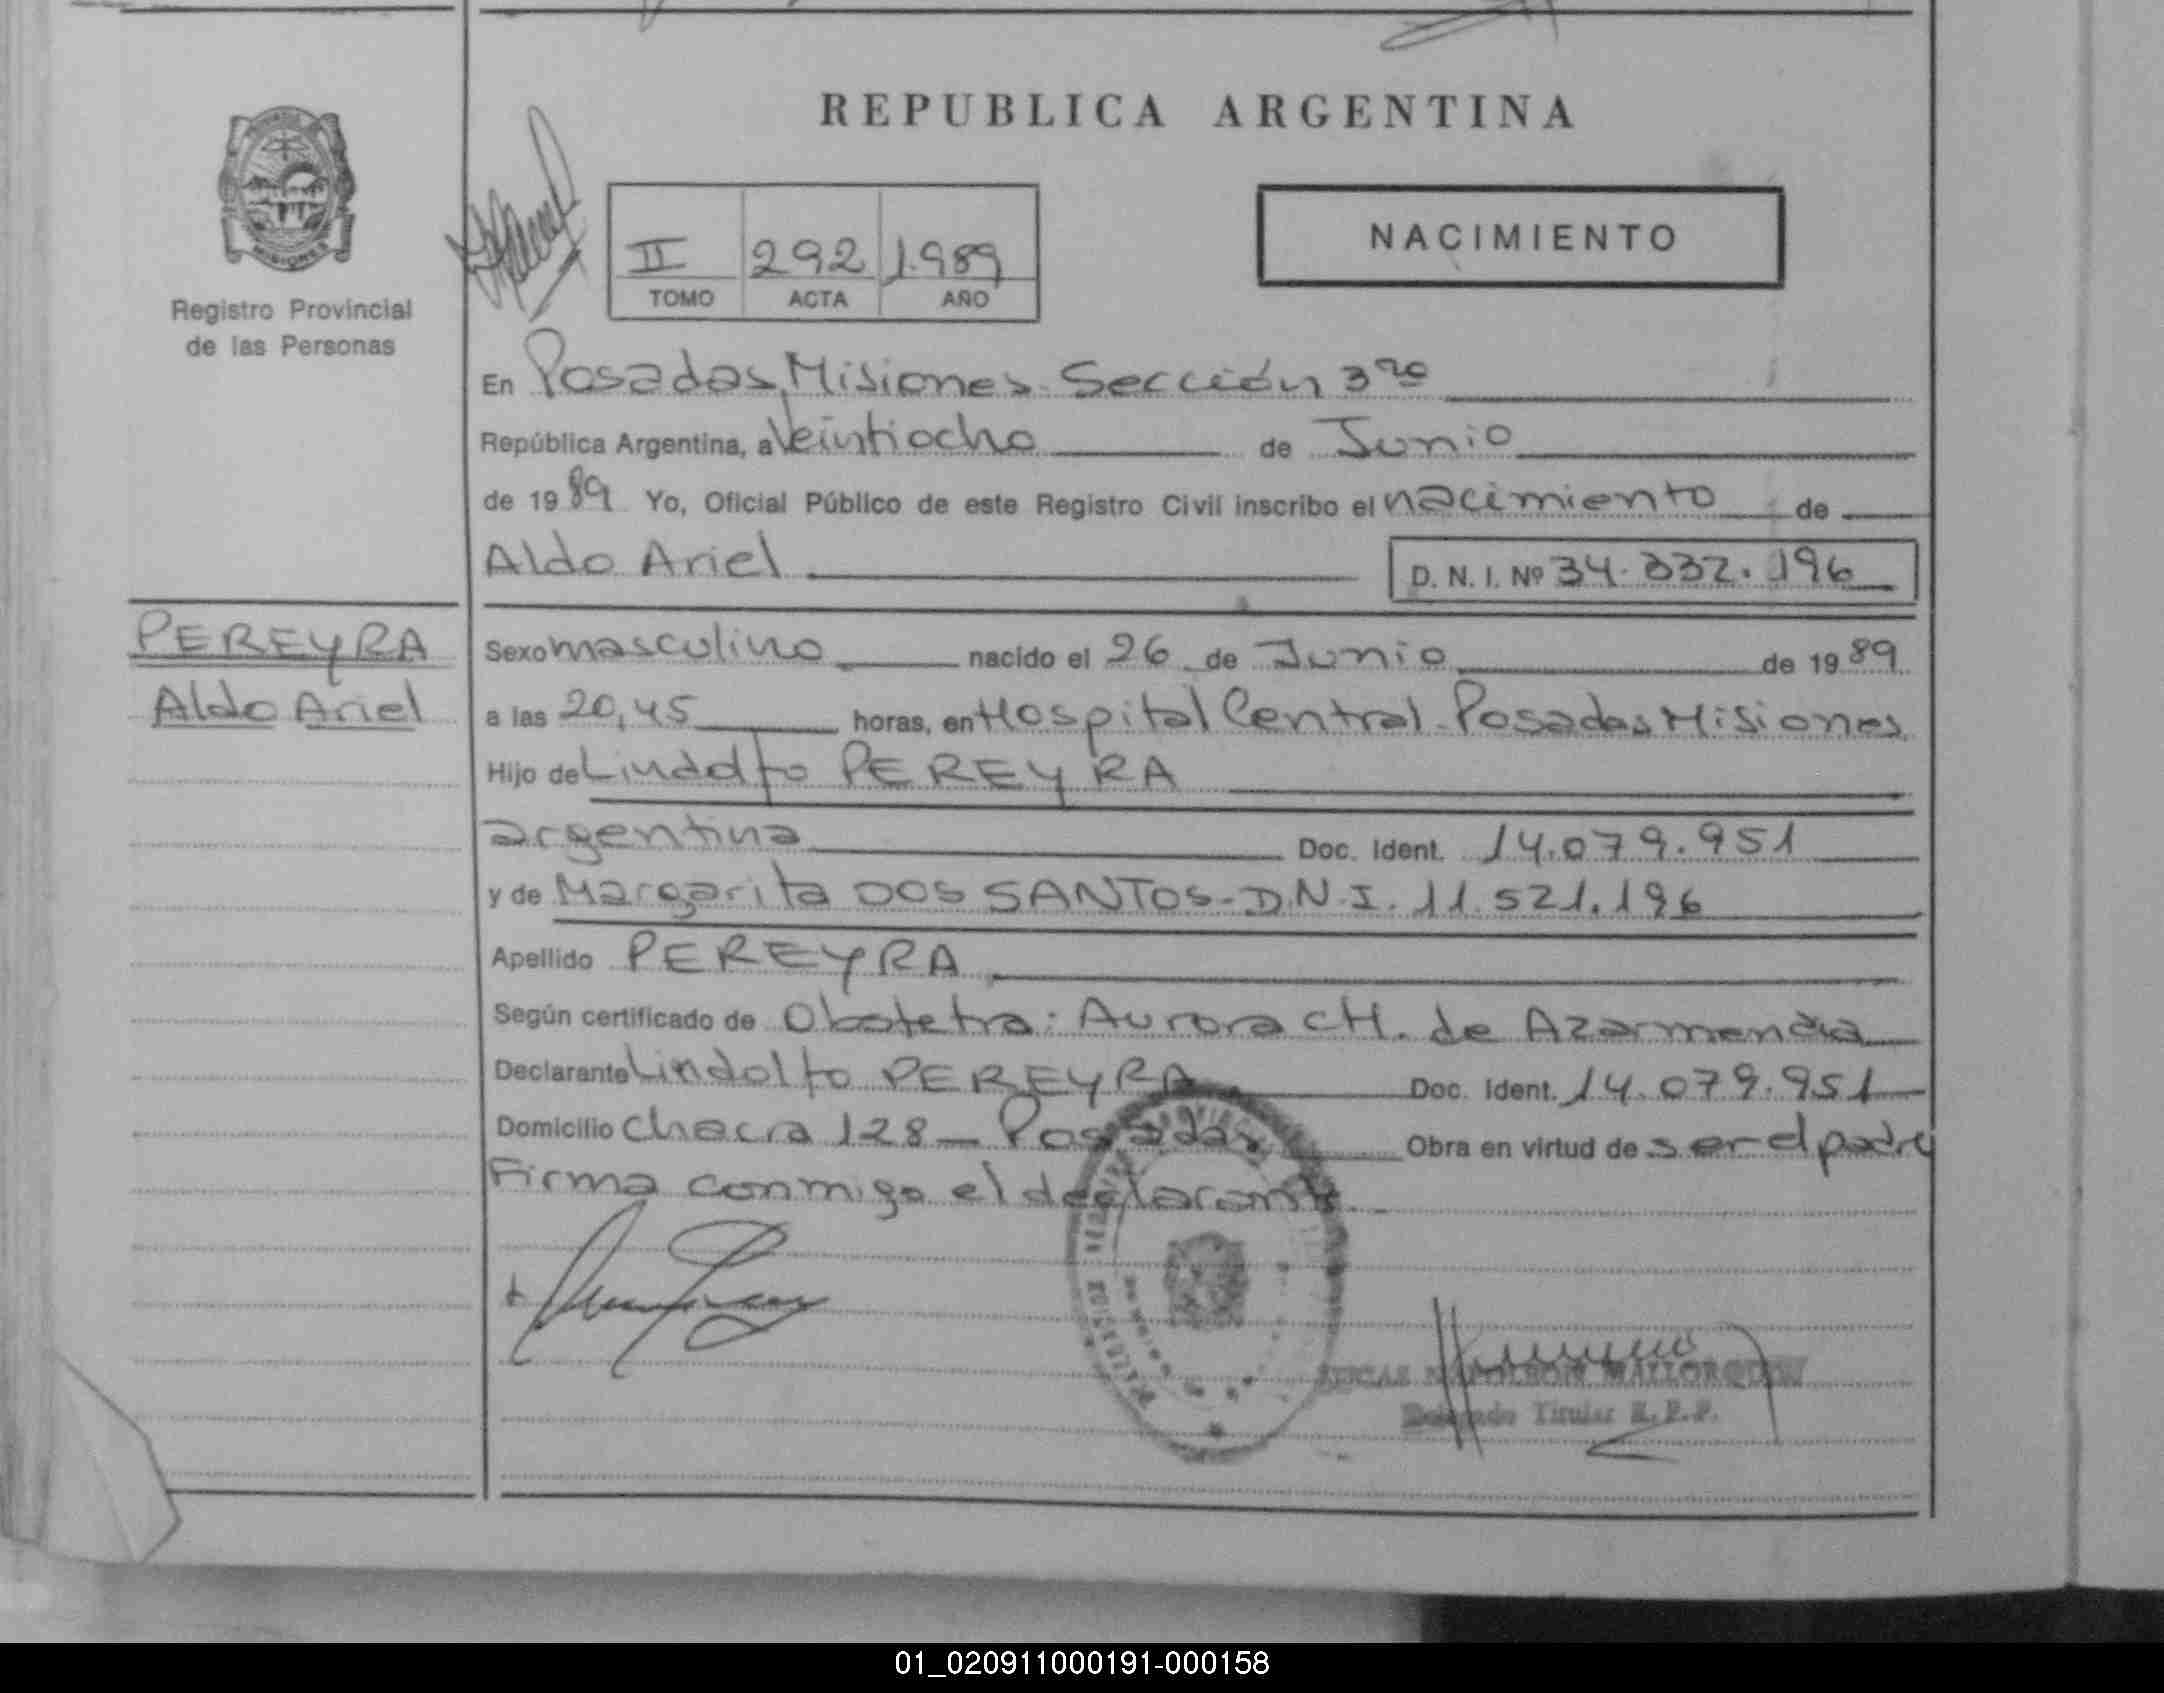 REPUBLICA ARGENTINA
MISIONES
Registro Provincial
de las Personas
NACIMIENTO
II 292 1.989
TOMO ACTA AÑO
En Posadas, Misiones. Sección 3ra
República Argentina, a Veintiocho de Junio
de 1989 Yo, Oficial Público de este Registro Civil inscribo el nacimiento de
Aldo Ariel D. N. I. Nº 34.332.196
PEREYRA
Aldo Ariel
Sexo masculino nacido el 26 de Junio de 1989
a las 20,45 horas, en Hospital Central Posadas Misiones
Hijo de Lindolfo PEREYRA
argentina Doc. Ident. 14.079.951
y de Margarita DOS SANTOS - D.N.I. 11.521.196
Apellido PEREYRA
Según certificado de Obstetra: Aurora CH. de Azarmendia
Declarante Lindolfo PEREYRA Doc. Ident. 14.079.951
Domicilio Chacra 128 - Posadas Obra en virtud de ser el padre
Firma conmigo el declarante.
LUCAS NAPOLEON MALLORQUIN
Delegado Titular R.P.P.
01_020911000191-000158